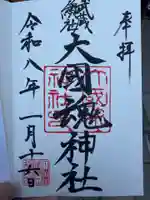 奉拝
武蔵総社
大國魂神社
令和八年一月十六日